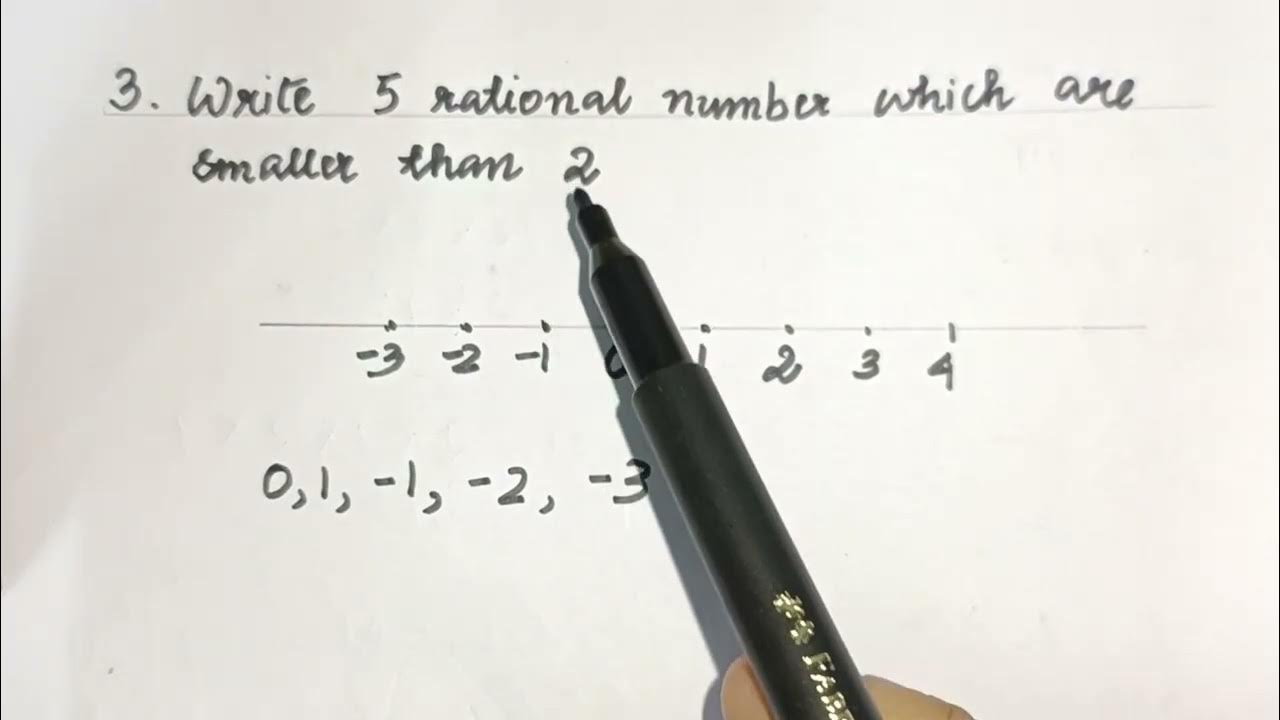 3. Write 5 rational number which are
smaller than 2
-3 -2 -1 0 1 2 3 4
0, 1, -1, -2, -3